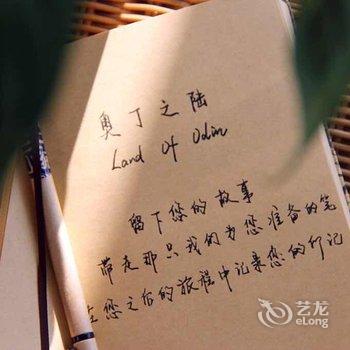 奥丁之陆
Land Of Odin
留下您的故事
带走那只我们为您准备的笔
在您之后的旅程中记录您的印记
艺龙
eLong